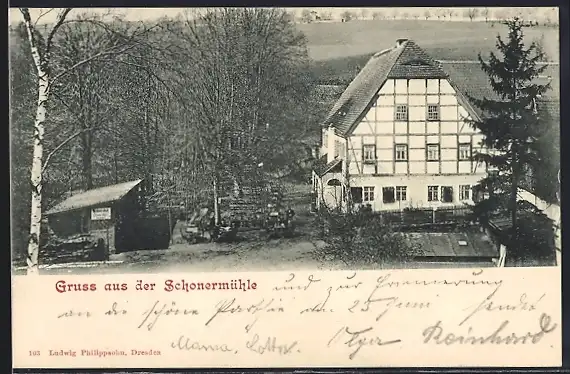 Gruss aus der Schonermühle und zur Erinnerung
an die schöne Parthie am 25 Juni sendet
Olga Reinhard
Mama.
103 Ludwig Philippsohn, Dresden